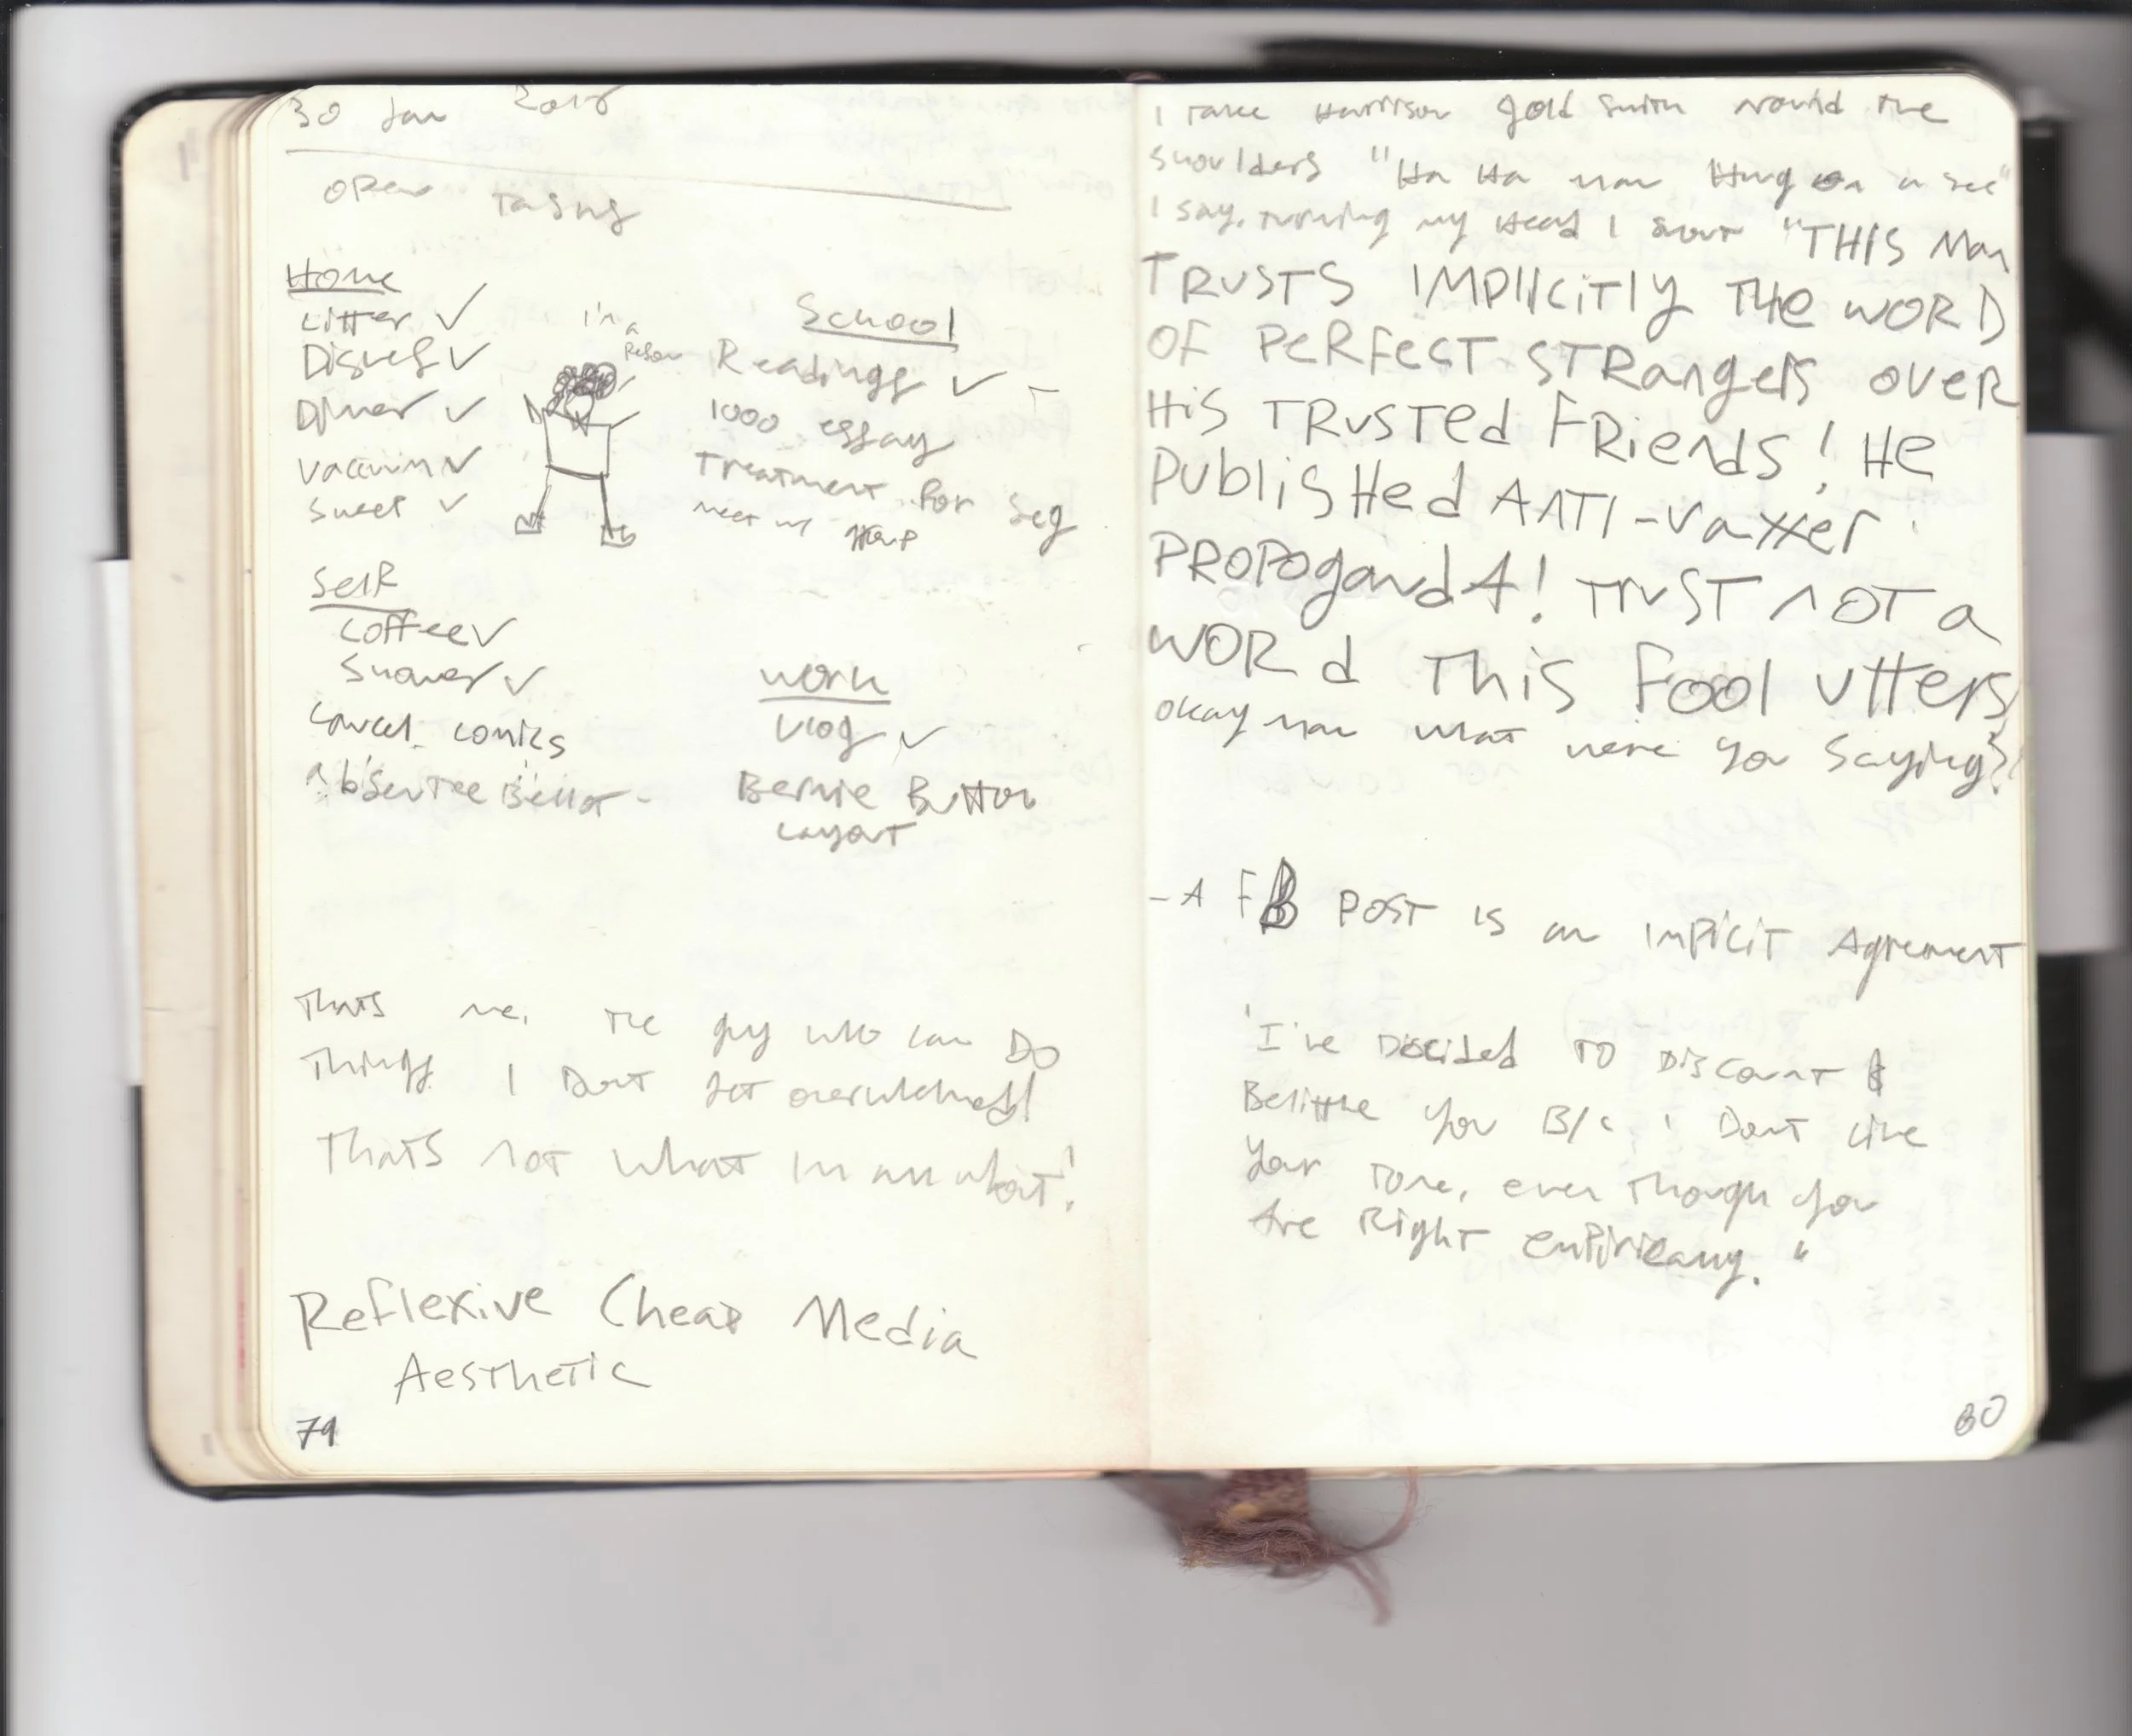 30 Jan 2016
Open Tasks
Home
Litter ✓
Dishes ✓
Dinner ✓
Vaccuum ✓
Sweep ✓
I'm a
Person
School
Readings ✓ -
1000 essay
Treatment for Seg
meet w/ group
Self
Coffee ✓
Shower ✓
Cancel comics
Absentee Ballot -
Work
Vlog ✓
Bernie Button
Layout
Thats me, the guy who can DO
Things I Dont get overwhelmed!
Thats not what Im all about!
Reflexive Cheap Media
Aesthetic
79
I take Harrison Goldsmith round the
shoulders "Ha Ha man Hang on a sec"
I say, turning my Head I shout "THIS Man
TRUSTS IMPlICiTly THe WORD
OF PeRFecT STRangeRS oveR
His TRusTed FRiends! He
PubliSHed ANTI-vaxxer
PROPOgandA! TRUST NOT a
WORd This Fool utters
okay man what were you Saying?
- A FB POST is an Implicit Agreement
"I've Decided TO Discount &
Belittle you B/c I Dont Like
Your Tone, even Though you
Are Right empirically."
80